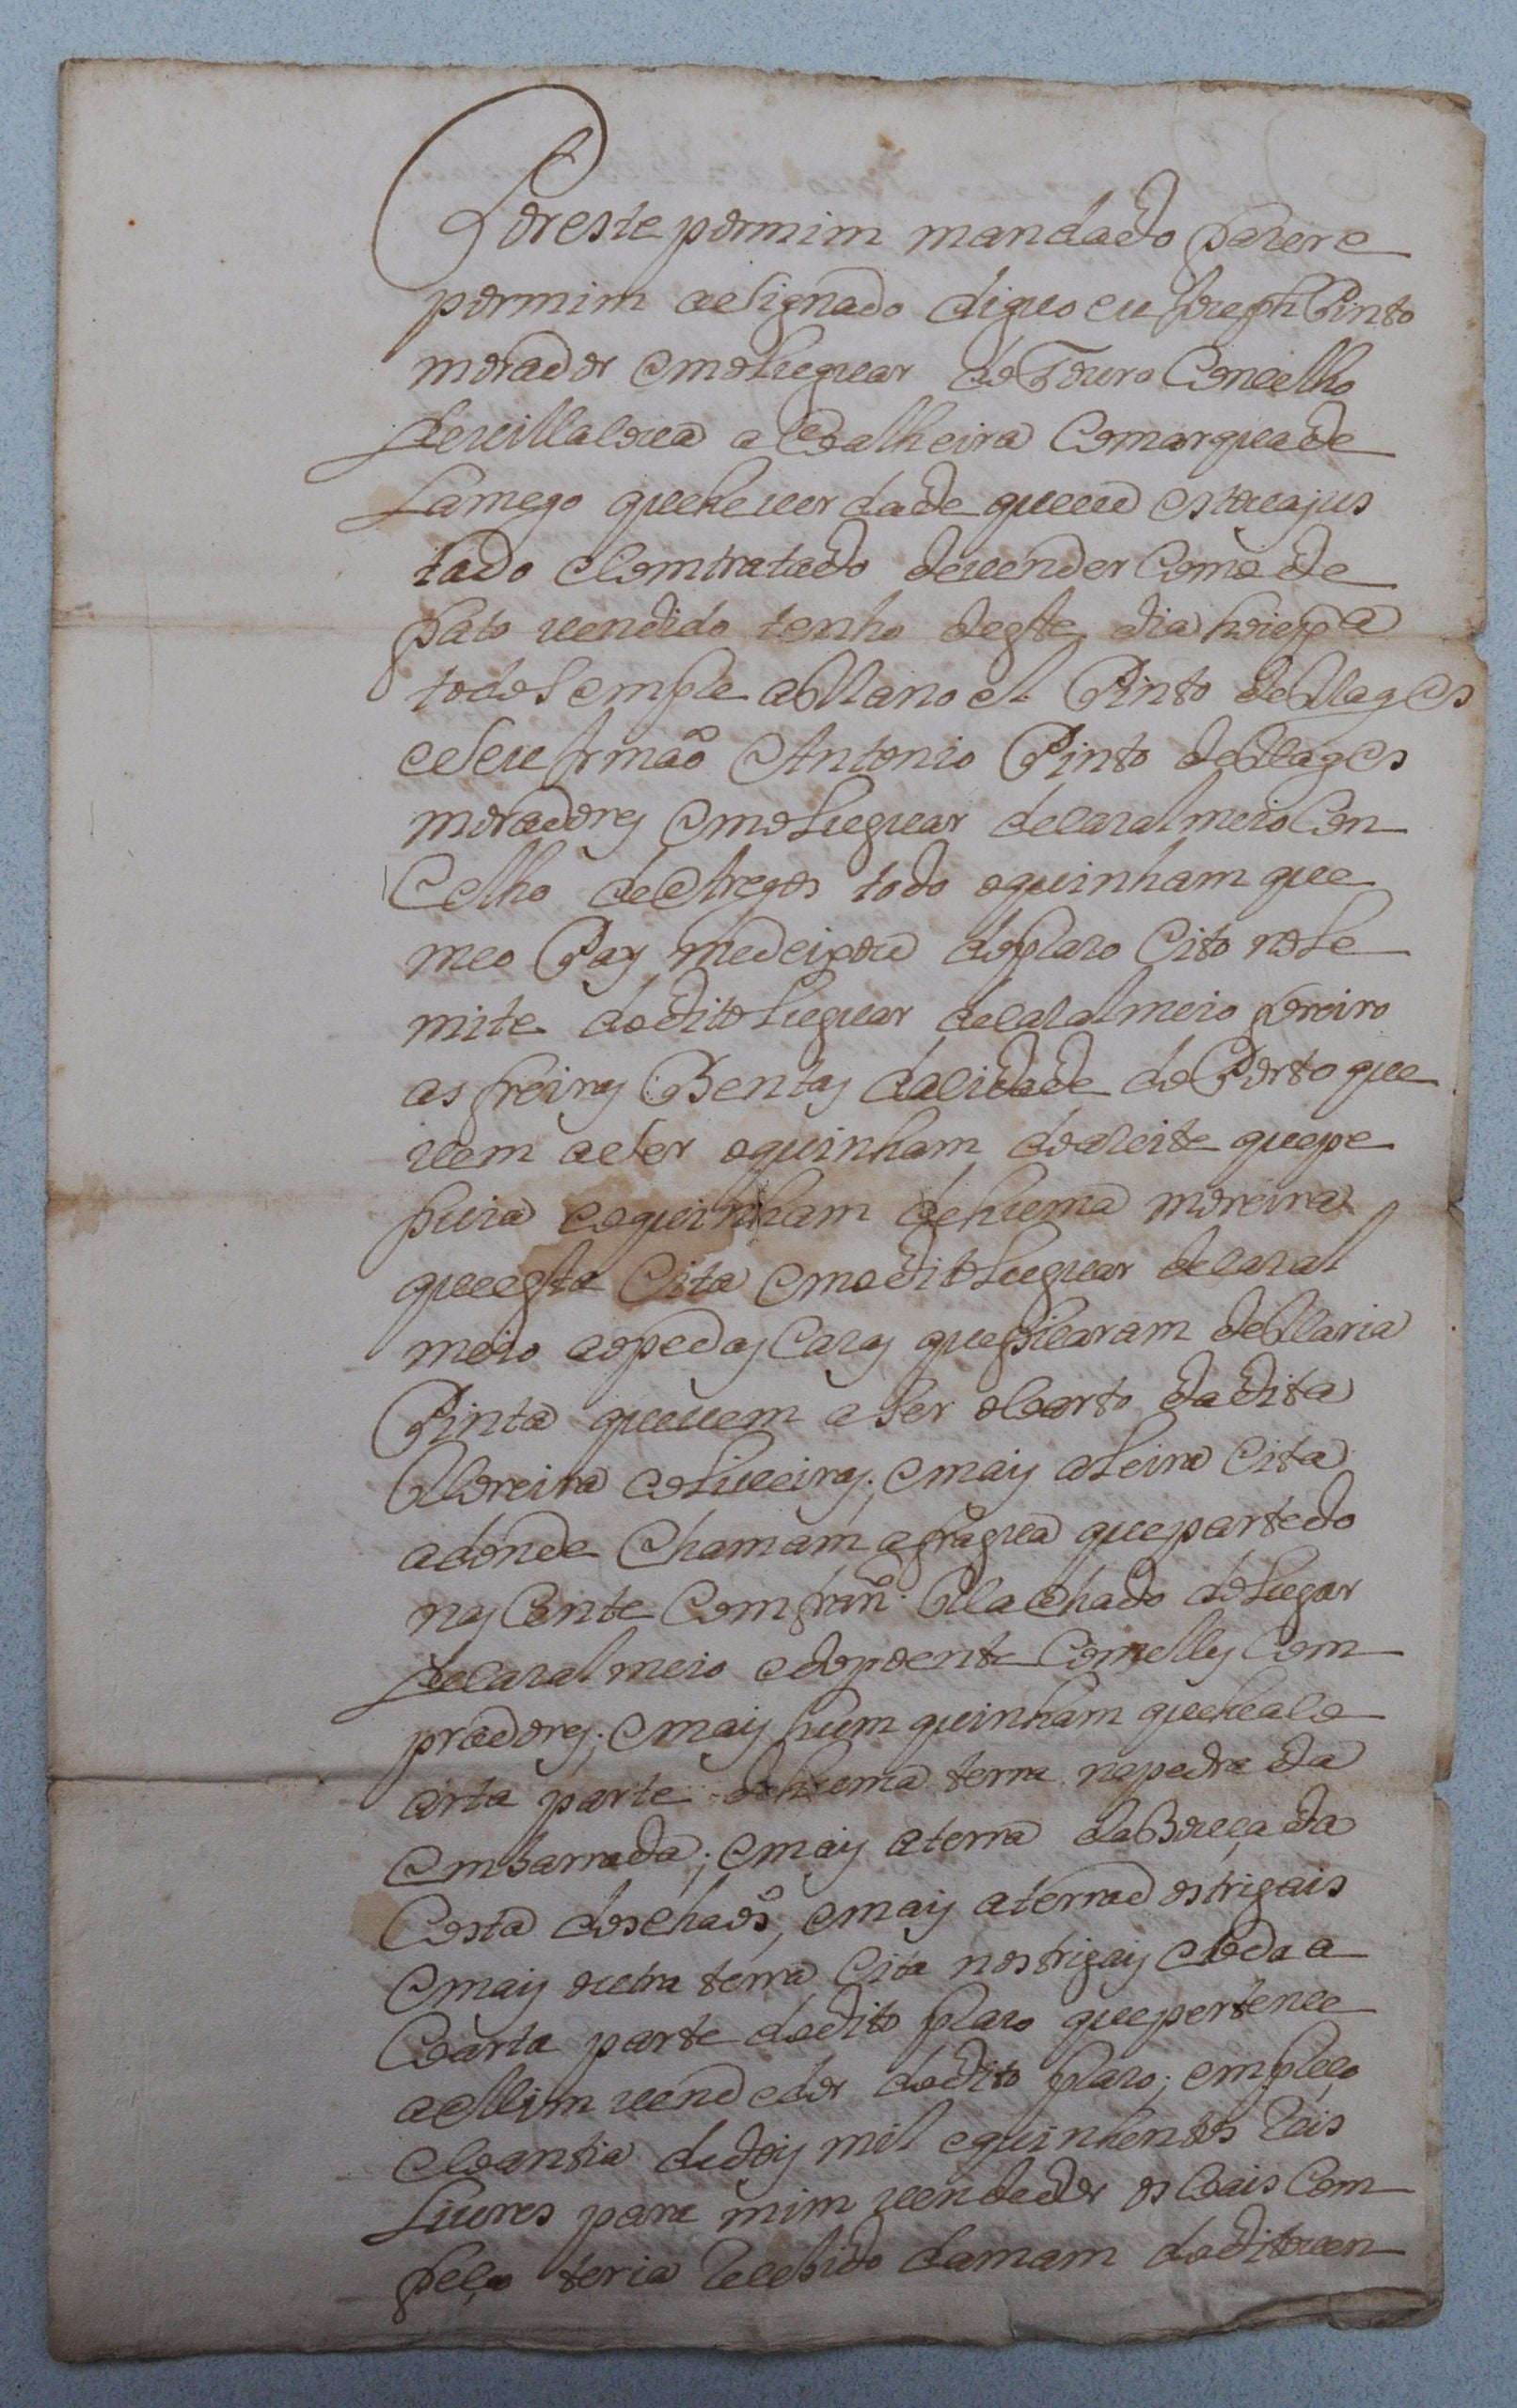 Por este por mim mandado fazer e
por mim aSignado diguo eu Joseph Pinto
morador em o Luguar do Touro Concelho
de villa Cova a Coalheira Comarqua de
Lamego que he verdade que eu estou ajus
tado e Comtratado de vender Como de
fato vendido tenho deste dia hoie p.a
todo Sempre a Manoel Pinto de Mag.es
e Seu Irmão Antonio Pinto de Mag.es
moradores em o Luguar de Cazalmeio Con
Celho de Aregos todo o quinham que
meo Pay me deixou do prazo Cito no Le
mite do dito Luguar de Cazalmeio foreiro
as freiras Bentas da Cidade do Porto que
vem a Ser o quinham do azeite que pe
suia e o quinham de huma moreira
que esta Cita em o dito Luguar de Cazal
meio ao pe das Cazas que ficaram de Maria
Pinta que vem a Ser o Coarto da dita
Moreira e oLiveiras; e mais a Leira Cita
adonde Chamam a fragua que parte do
nasCente Com fran.co Machado do Lugar
de Cazalmeio e do poente Com elles Com
pradores; e mais hum quinham que he a Co
arta parte de huma terra na pedra da
embarrada; e mais a terra da Bouça da
Costa dos Chãos, e mais a terra dos trigais
e mais outra terra Cita nos trigais e toda a
Coarta parte do dito prazo que pertence
a Mim vendedor do dito prazo; em preço
e Coantia de dois mil e quinhentos Reis
Livres para mim vendedor os Coais Com
feço teria Recebido da mam do dito ven